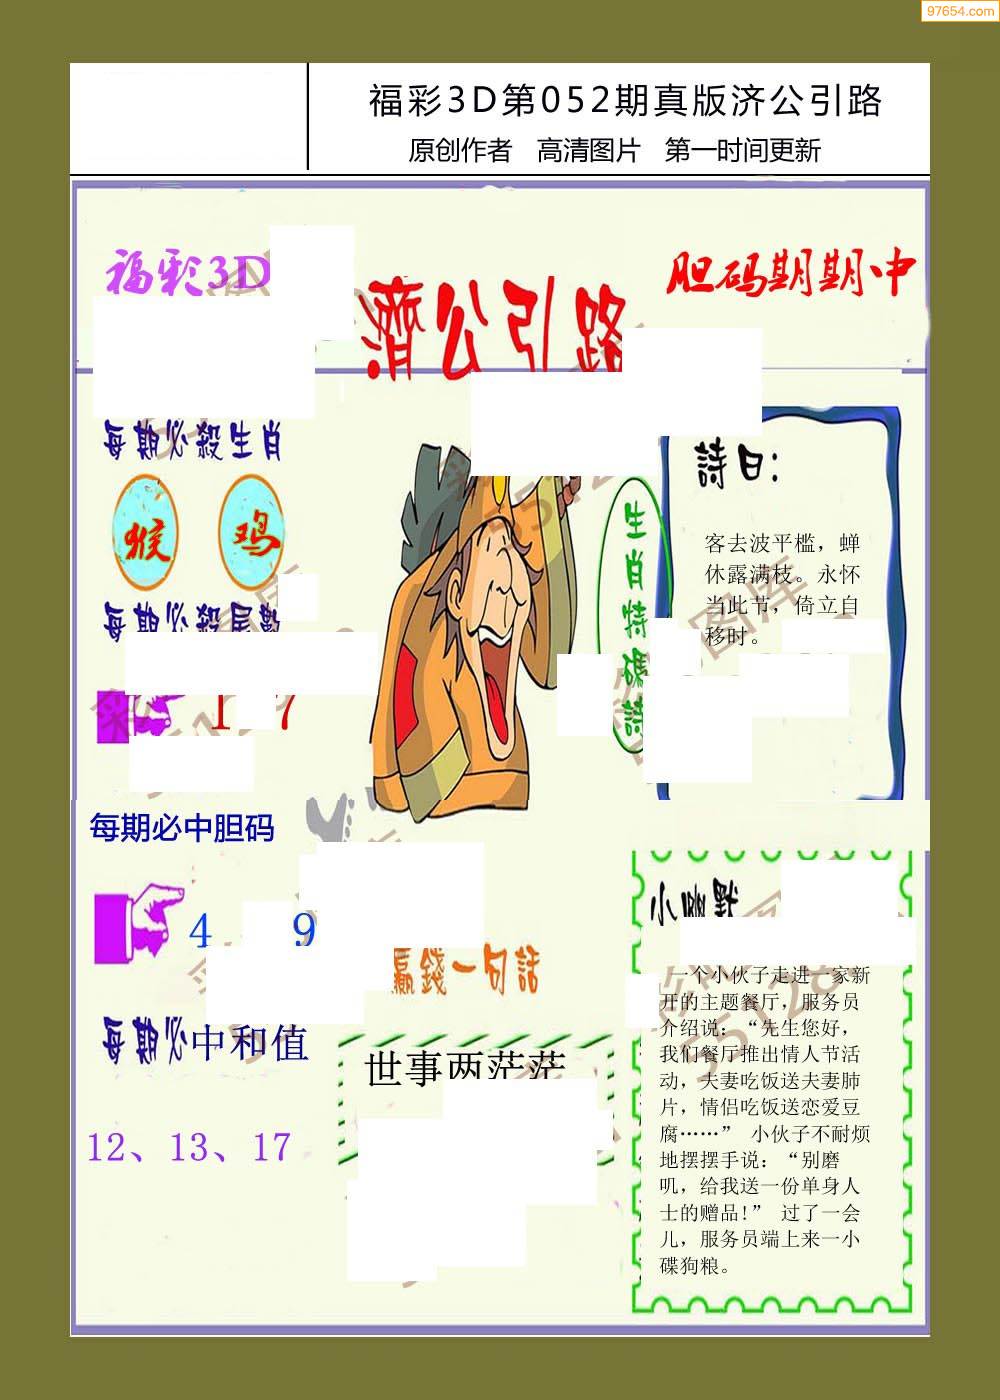 97654.com
福彩3D第052期真版济公引路
原创作者 高清图片 第一时间更新
福彩3D
胆码期期中
濟公引路
每期必殺生肖
猴 鸡
每期必殺尾數
1 7
生肖特碼詩
詩曰：
客去波平槛，蝉
休露满枝。永怀
当此节，倚立自
移时。
每期必中胆码
4 9
贏錢一句話
每期必中和值
世事两茫茫
12、13、17
小幽默
一个小伙子走进一家新
开的主题餐厅，服务员
介绍说：“先生您好，
我们餐厅推出情人节活
动，夫妻吃饭送夫妻肺
片，情侣吃饭送恋爱豆
腐……” 小伙子不耐烦
地摆摆手说：“别磨
叽，给我送一份单身人
士的赠品!” 过了一会
儿，服务员端上来一小
碟狗粮。